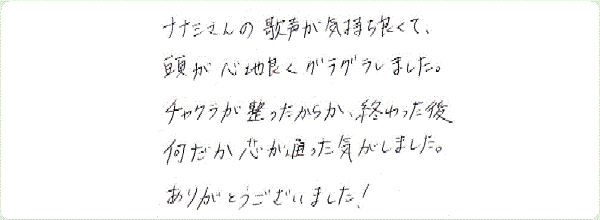 ナナミさんの歌声が気持ち良くて、
頭が心地良くグラグラしました。
チャクラが整ったからか、終わった後
何だか芯が通った気がしました。
ありがとうございました！